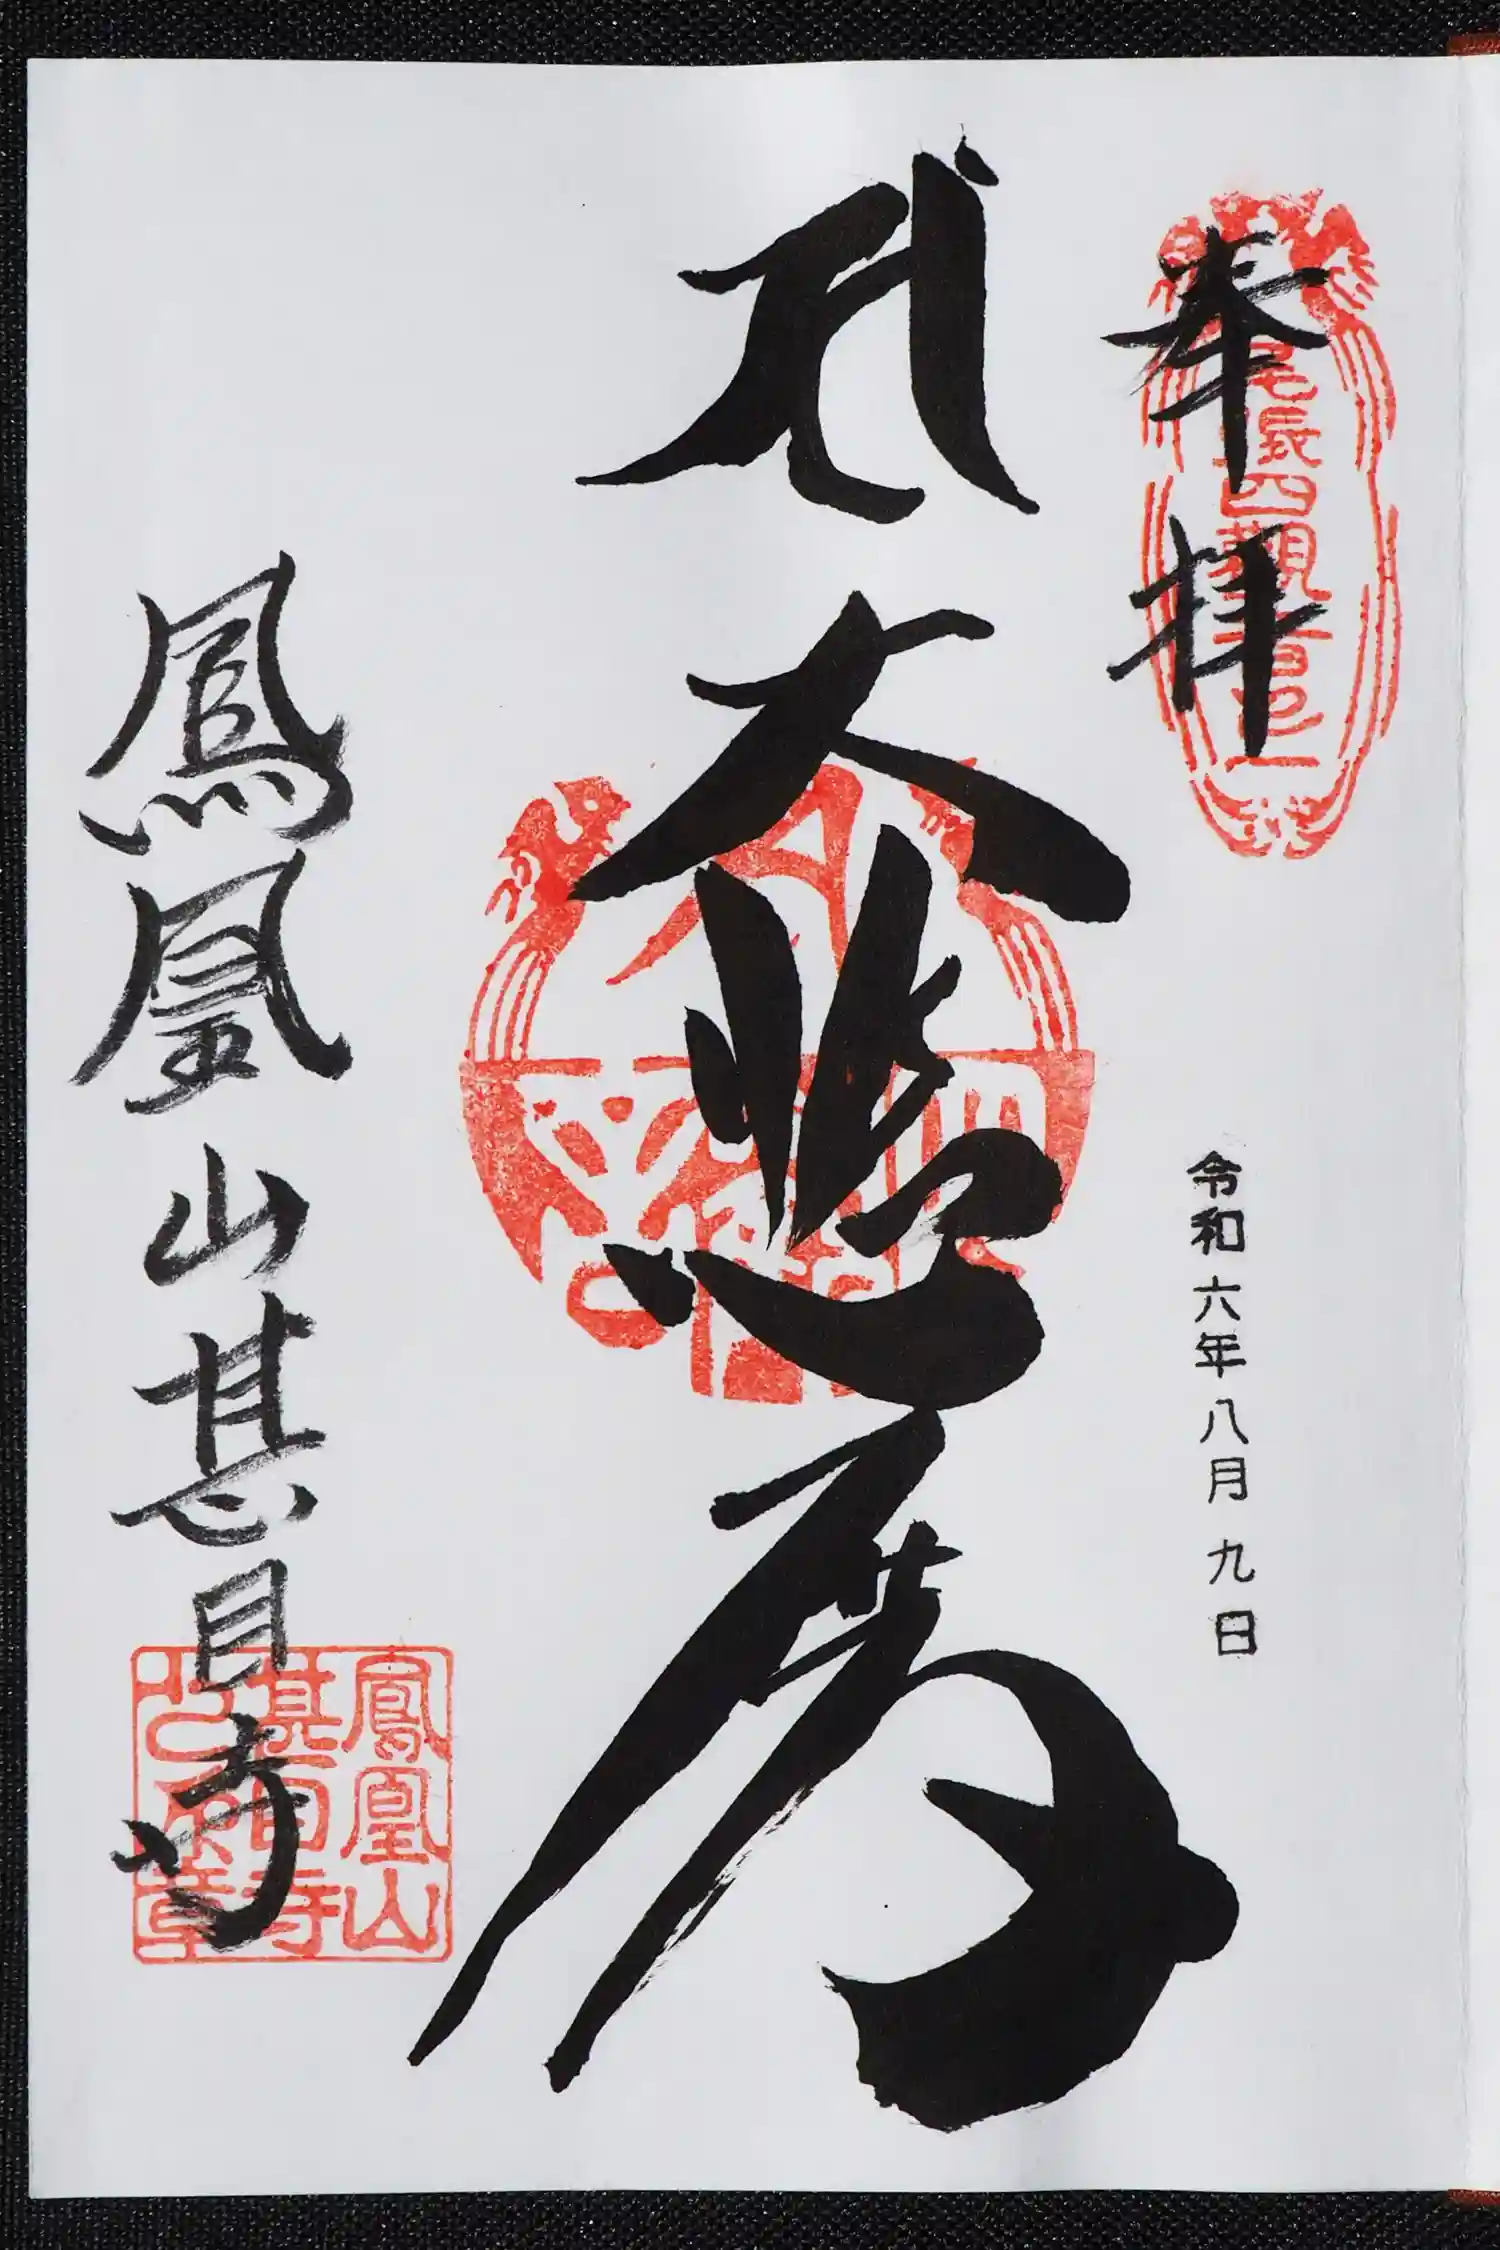 奉拝
尾張四観音之一
令和六年八月九日
大悲殿
鳳凰山甚目寺
鳳凰山
甚目寺